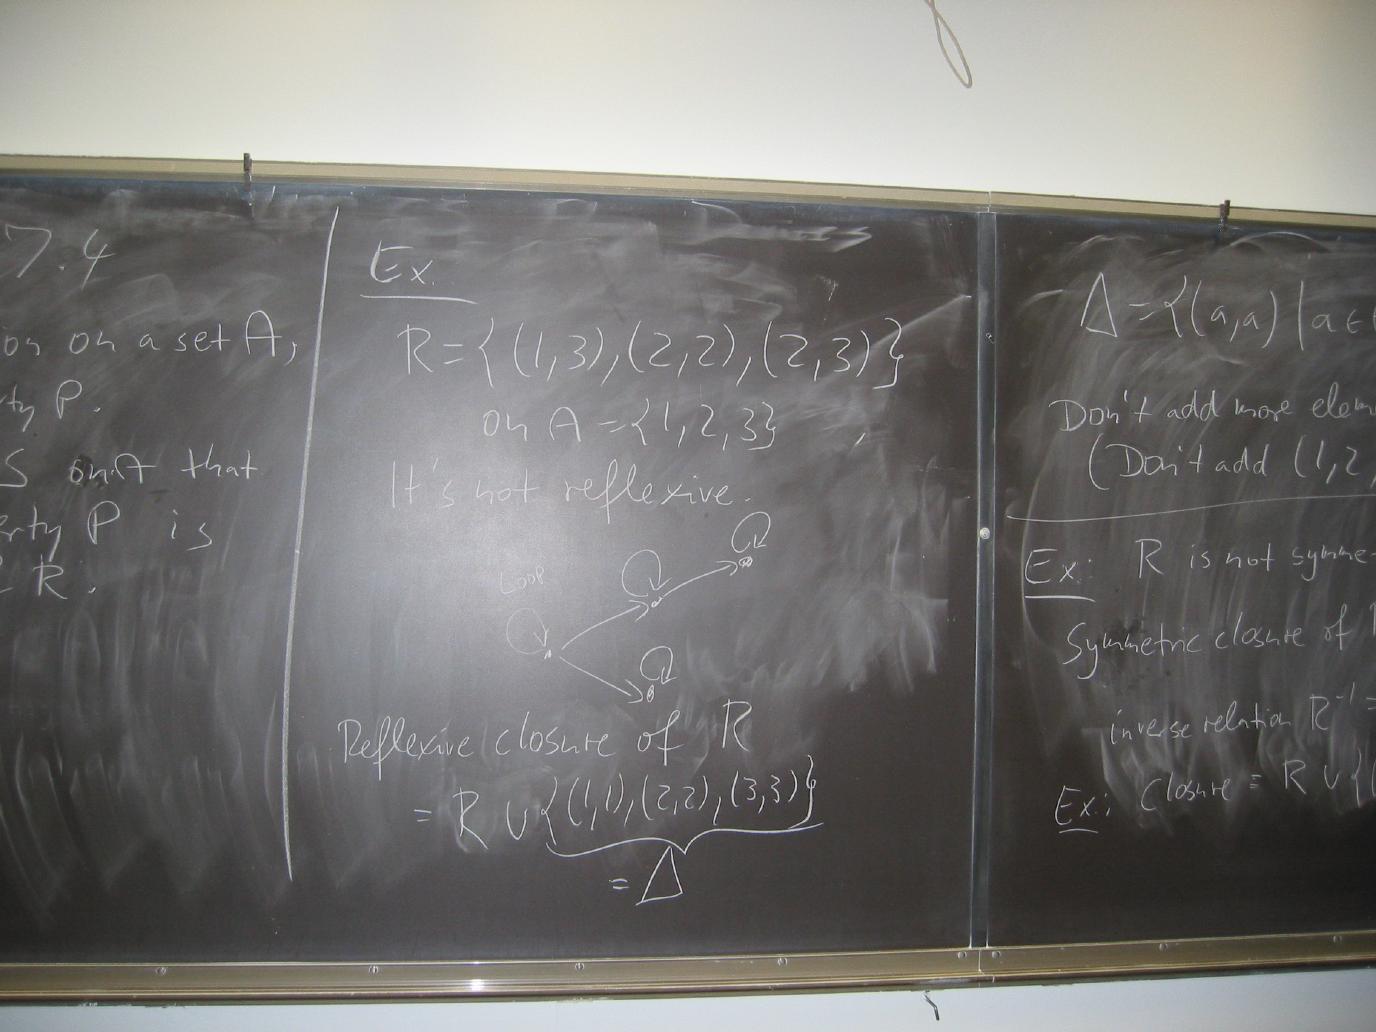 7.4
on on a set A,
ty P.
S on A that
erty P is
R.
Ex.
R={(1,3),(2,2),(2,3)}
on A={1,2,3}
It's not reflexive.
LOOP
Reflexive closure of R
= R ∪{(1,1),(2,2),(3,3)}
= Δ
Δ={(a,a)|a∈
Don't add more elem
(Don't add (1,2,
Ex: R is not symme
Symmetric closure of R
inverse relation R⁻¹ =
Ex: Closure = R ∪{(